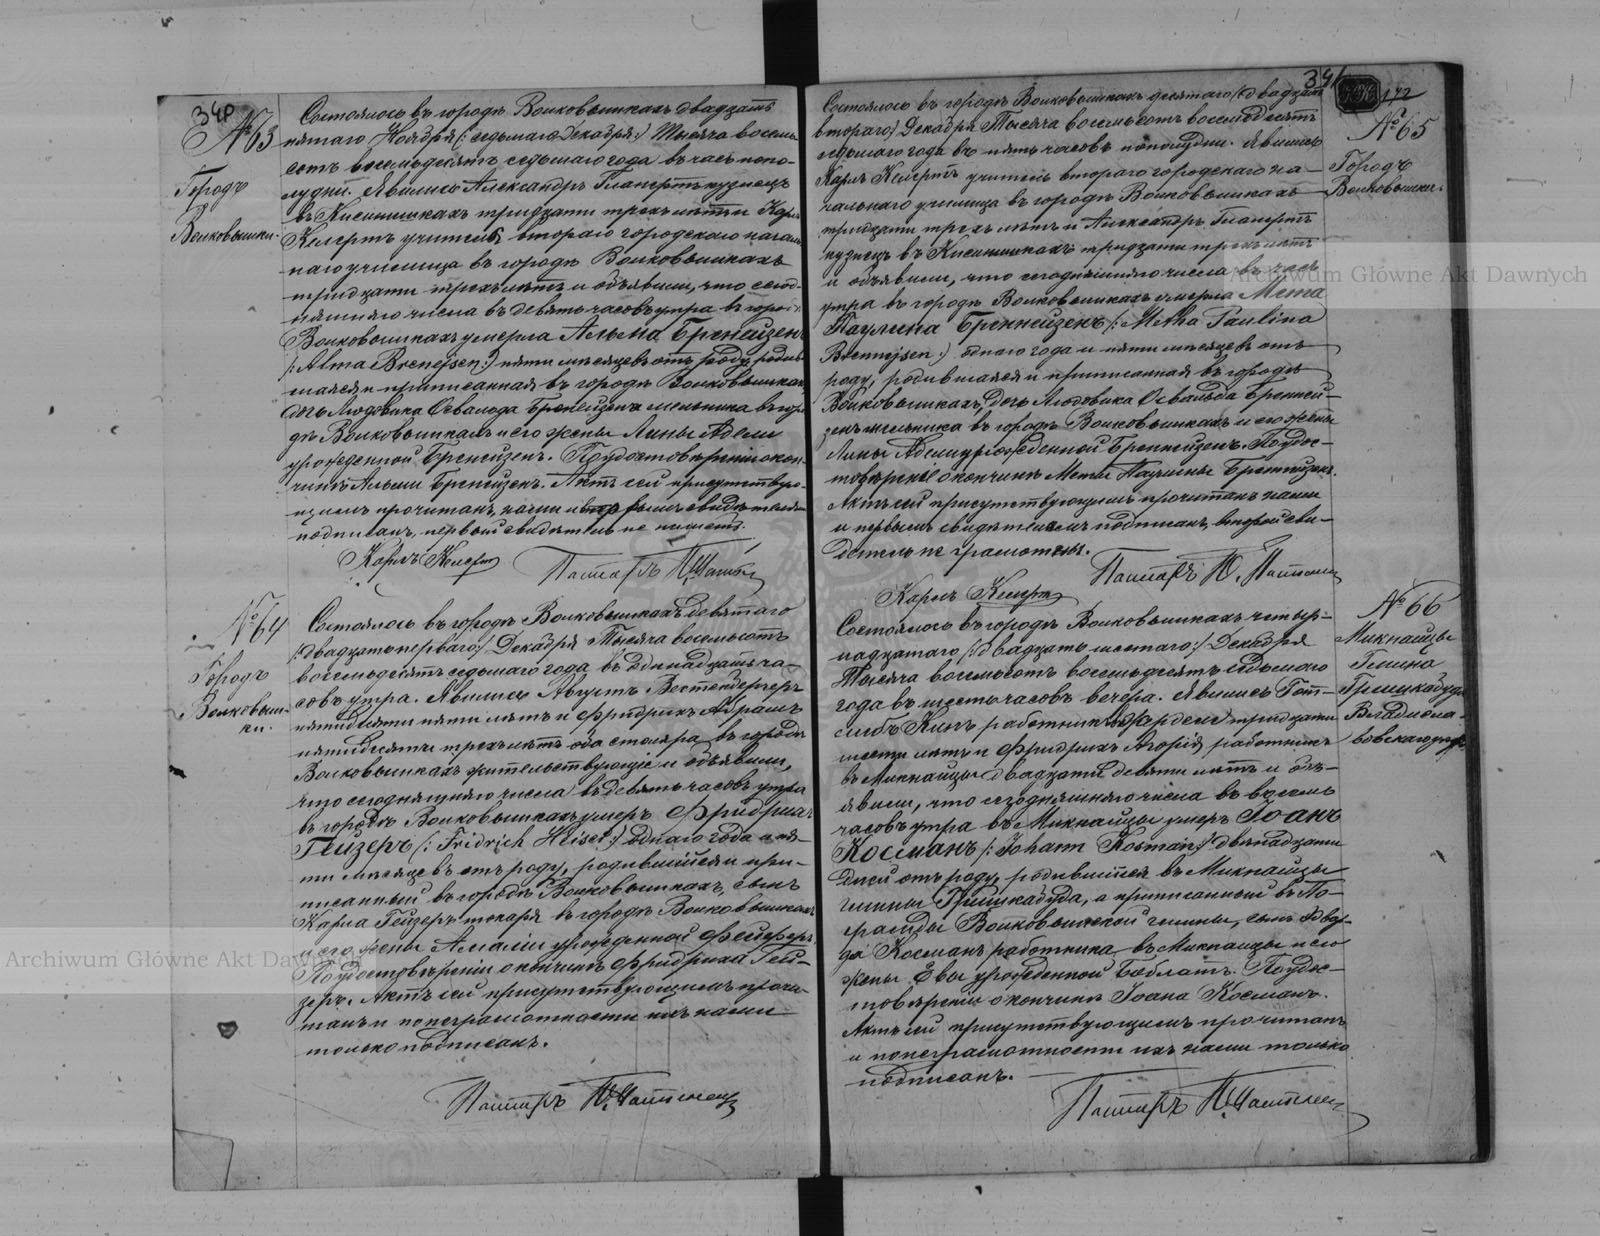 340
№ 63
Городъ
Волковышки.
Состоялось въ городѣ Волковышкахъ двадцать
пятаго Ноября /: седьмаго Декабря :/ Тысяча восемь
сотъ восемьдесятъ седьмаго года въ часъ попо-
лудни. Явились Александръ Гланертъ кузнецъ
въ Кисинишкахъ тридцати трехъ лѣтъ и Карлъ
Келертъ учитель втораго городскаго началь
наго училища въ городѣ Волковышкахъ
тридцати трехъ лѣтъ и объявили, что сегод-
няшняго числа въ девять часовъ утра въ городѣ
Волковышкахъ умерла Альма Бренейзенъ
/: Alma Brenejsen :/ пяти мѣсяцевъ отъ роду, родив-
шаяся и приписанная въ городѣ Волковышкахъ
дочь Людовика Освальда Бренейзенъ мельника въ горо
дѣ Волковышкахъ и его жены Лины Адели
урожденной Бренейзенъ. По удостовѣреніи о кон-
чинѣ Альмы Бренейзенъ. Актъ сей присутствую-
щимъ прочитанъ, нами и вторымъ свидѣтелемъ
подписанъ, первый свидѣтель не пишетъ.
Карлъ Келертъ Пасторъ
№ 64
Городъ
Волковыш-
ки.
Состоялось въ городѣ Волковышкахъ девятаго
/: двадцать перваго :/ Декабря Тысяча восемьсотъ
восемьдесятъ седьмаго года въ одинадцать ча-
совъ утра. Явились Августъ Вестенбергеръ
пятидесяти пяти лѣтъ и Фридрихъ Абрамъ
пятидесяти трехъ лѣтъ оба столяра въ городѣ
Волковышкахъ жительствующіе и объявили,
что сегодняшняго числа въ девять часовъ утра
въ городѣ Волковышкахъ умеръ Фридрихъ
Гейзеръ /: Fridrich Heiser :/ одного года и пя-
ти мѣсяцевъ отъ роду, родившійся и при-
писанный въ городѣ Волковышкахъ, сынъ
Карла Гейзеръ токаря въ городѣ Волковышкахъ
и его жены Амаліи урожденной Фейферъ.
По удостовѣреніи о кончинѣ Фридриха Гей-
зеръ. Актъ сей присутствующимъ прочи-
танъ и по неграмотности ихъ нами
только подписанъ.
Пасторъ
341
172
№ 65
Городъ
Волковышки.
Состоялось въ городѣ Волковышкахъ десятаго /: двадцать
втораго :/ Декабря Тысяча восемьсотъ восемьдесятъ
седьмаго года въ пять часовъ пополудни. Явились
Карлъ Келертъ учитель втораго городскаго на-
чальнаго училища въ городѣ Волковышкахъ
тридцати трехъ лѣтъ и Александръ Гланертъ
кузнецъ въ Кисинишкахъ тридцати трехъ лѣтъ
и объявили, что сегодняшняго числа въ часъ
утра въ городѣ Волковышкахъ умерла Мета
Паулина Бреннейзенъ /: Metha Paulina
Brennejsen :/ одного года и пяти мѣсяцевъ отъ
роду, родившаяся и приписанная въ городѣ
Волковышкахъ, дочь Людовика Освальда Бренней-
зенъ мельника въ городѣ Волковышкахъ и его жены
Лины Адели урожденной Бреннейзенъ. По удос-
товѣреніи о кончинѣ Меты Паулины Бреннейзенъ.
Актъ сей присутствующимъ прочитанъ нами
и первымъ свидѣтелемъ подписанъ, второй сви-
дѣтель не грамотенъ.
Пасторъ
Карлъ Келертъ
№ 66
Микнайцы
Гмина
Гришкабуда
Владисла-
вовскаго уѣзда
Состоялось въ городѣ Волковышкахъ четыр-
надцатаго /: двадцать шестаго :/ Декабря
Тысяча восемьсотъ восемьдесятъ седьмаго
года въ шесть часовъ вечера. Явились Гот-
либъ работникъ тридцати
шести лѣтъ и Фридрихъ работникъ
въ Микнайцы двадцати девяти лѣтъ и объ-
явили, что сегодняшняго числа въ восемь
часовъ утра въ Микнайцы умеръ Іоанъ
Косманъ /: Johann Kosman :/ двѣнадцати
дней отъ роду, родившійся въ Микнайцы
гмины Гришкабуда, а приписанный въ По-
гмины, сынъ Эдвар-
да Косманъ работника въ Микнайцы и его
жены Евы урожденной Боблатъ. По удос-
товѣреніи о кончинѣ Іоана Косманъ.
Актъ сей присутствующимъ прочитанъ
и по неграмотности ихъ нами только
подписанъ.
Пасторъ
Archiwum Główne Akt Dawnych
Archiwum Główne Akt Dawnych